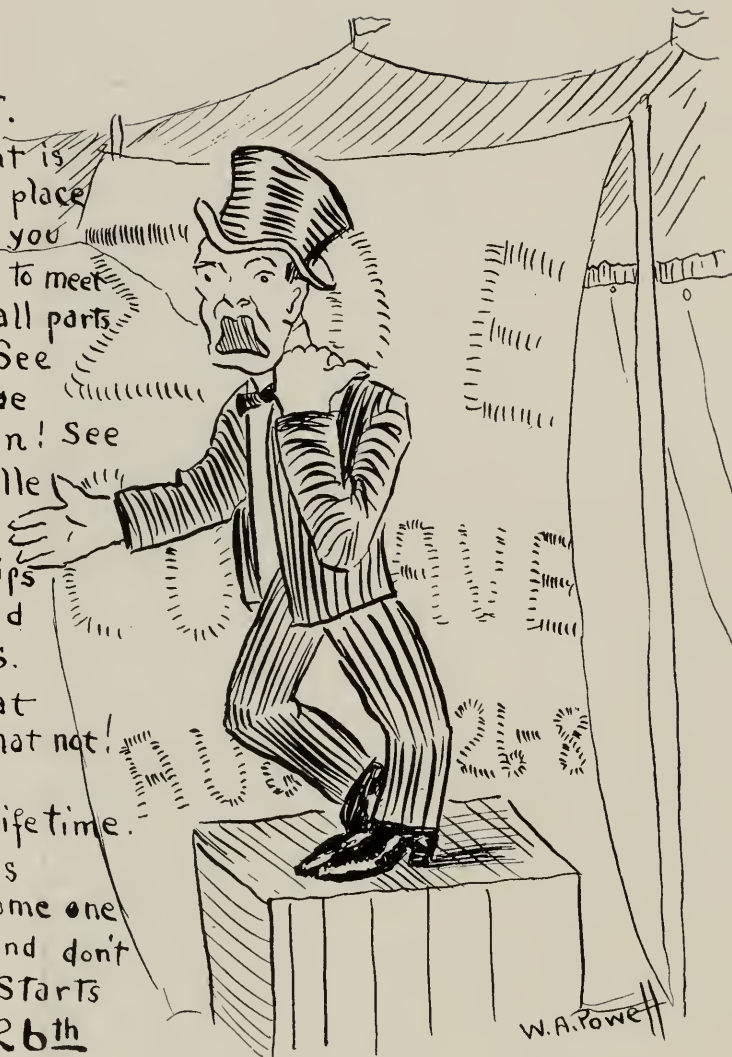 at is
place
you
to meet
all parts
See
n! See
lle
ips
d
s.
at
hat not!
ifetime.
s
ome one
nd don't
Starts
26th
E
AVE
AUG
W.A. Powell